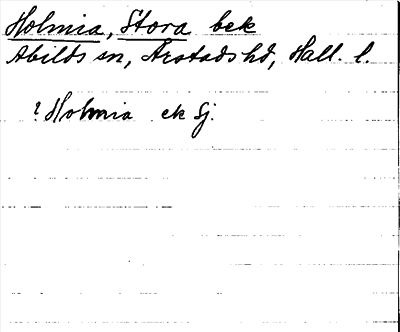 Holmia, Stora bek
Abilds sn, Årstads hd, Hall. l.
? Holmia ek Sj.